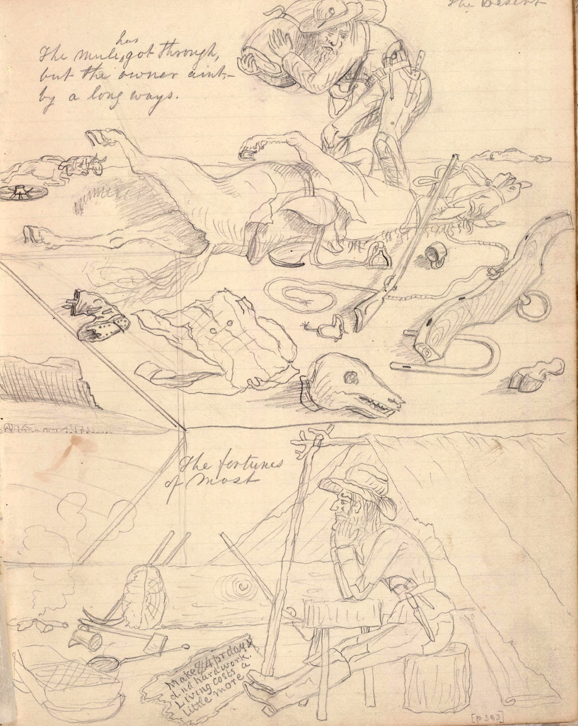 The Desert
has
The mule, got through,
but the owner aint
by a long ways.
The fortunes
of Most
Make $4 pr day &
find hard work.
Living costs a
little more
[p 303]